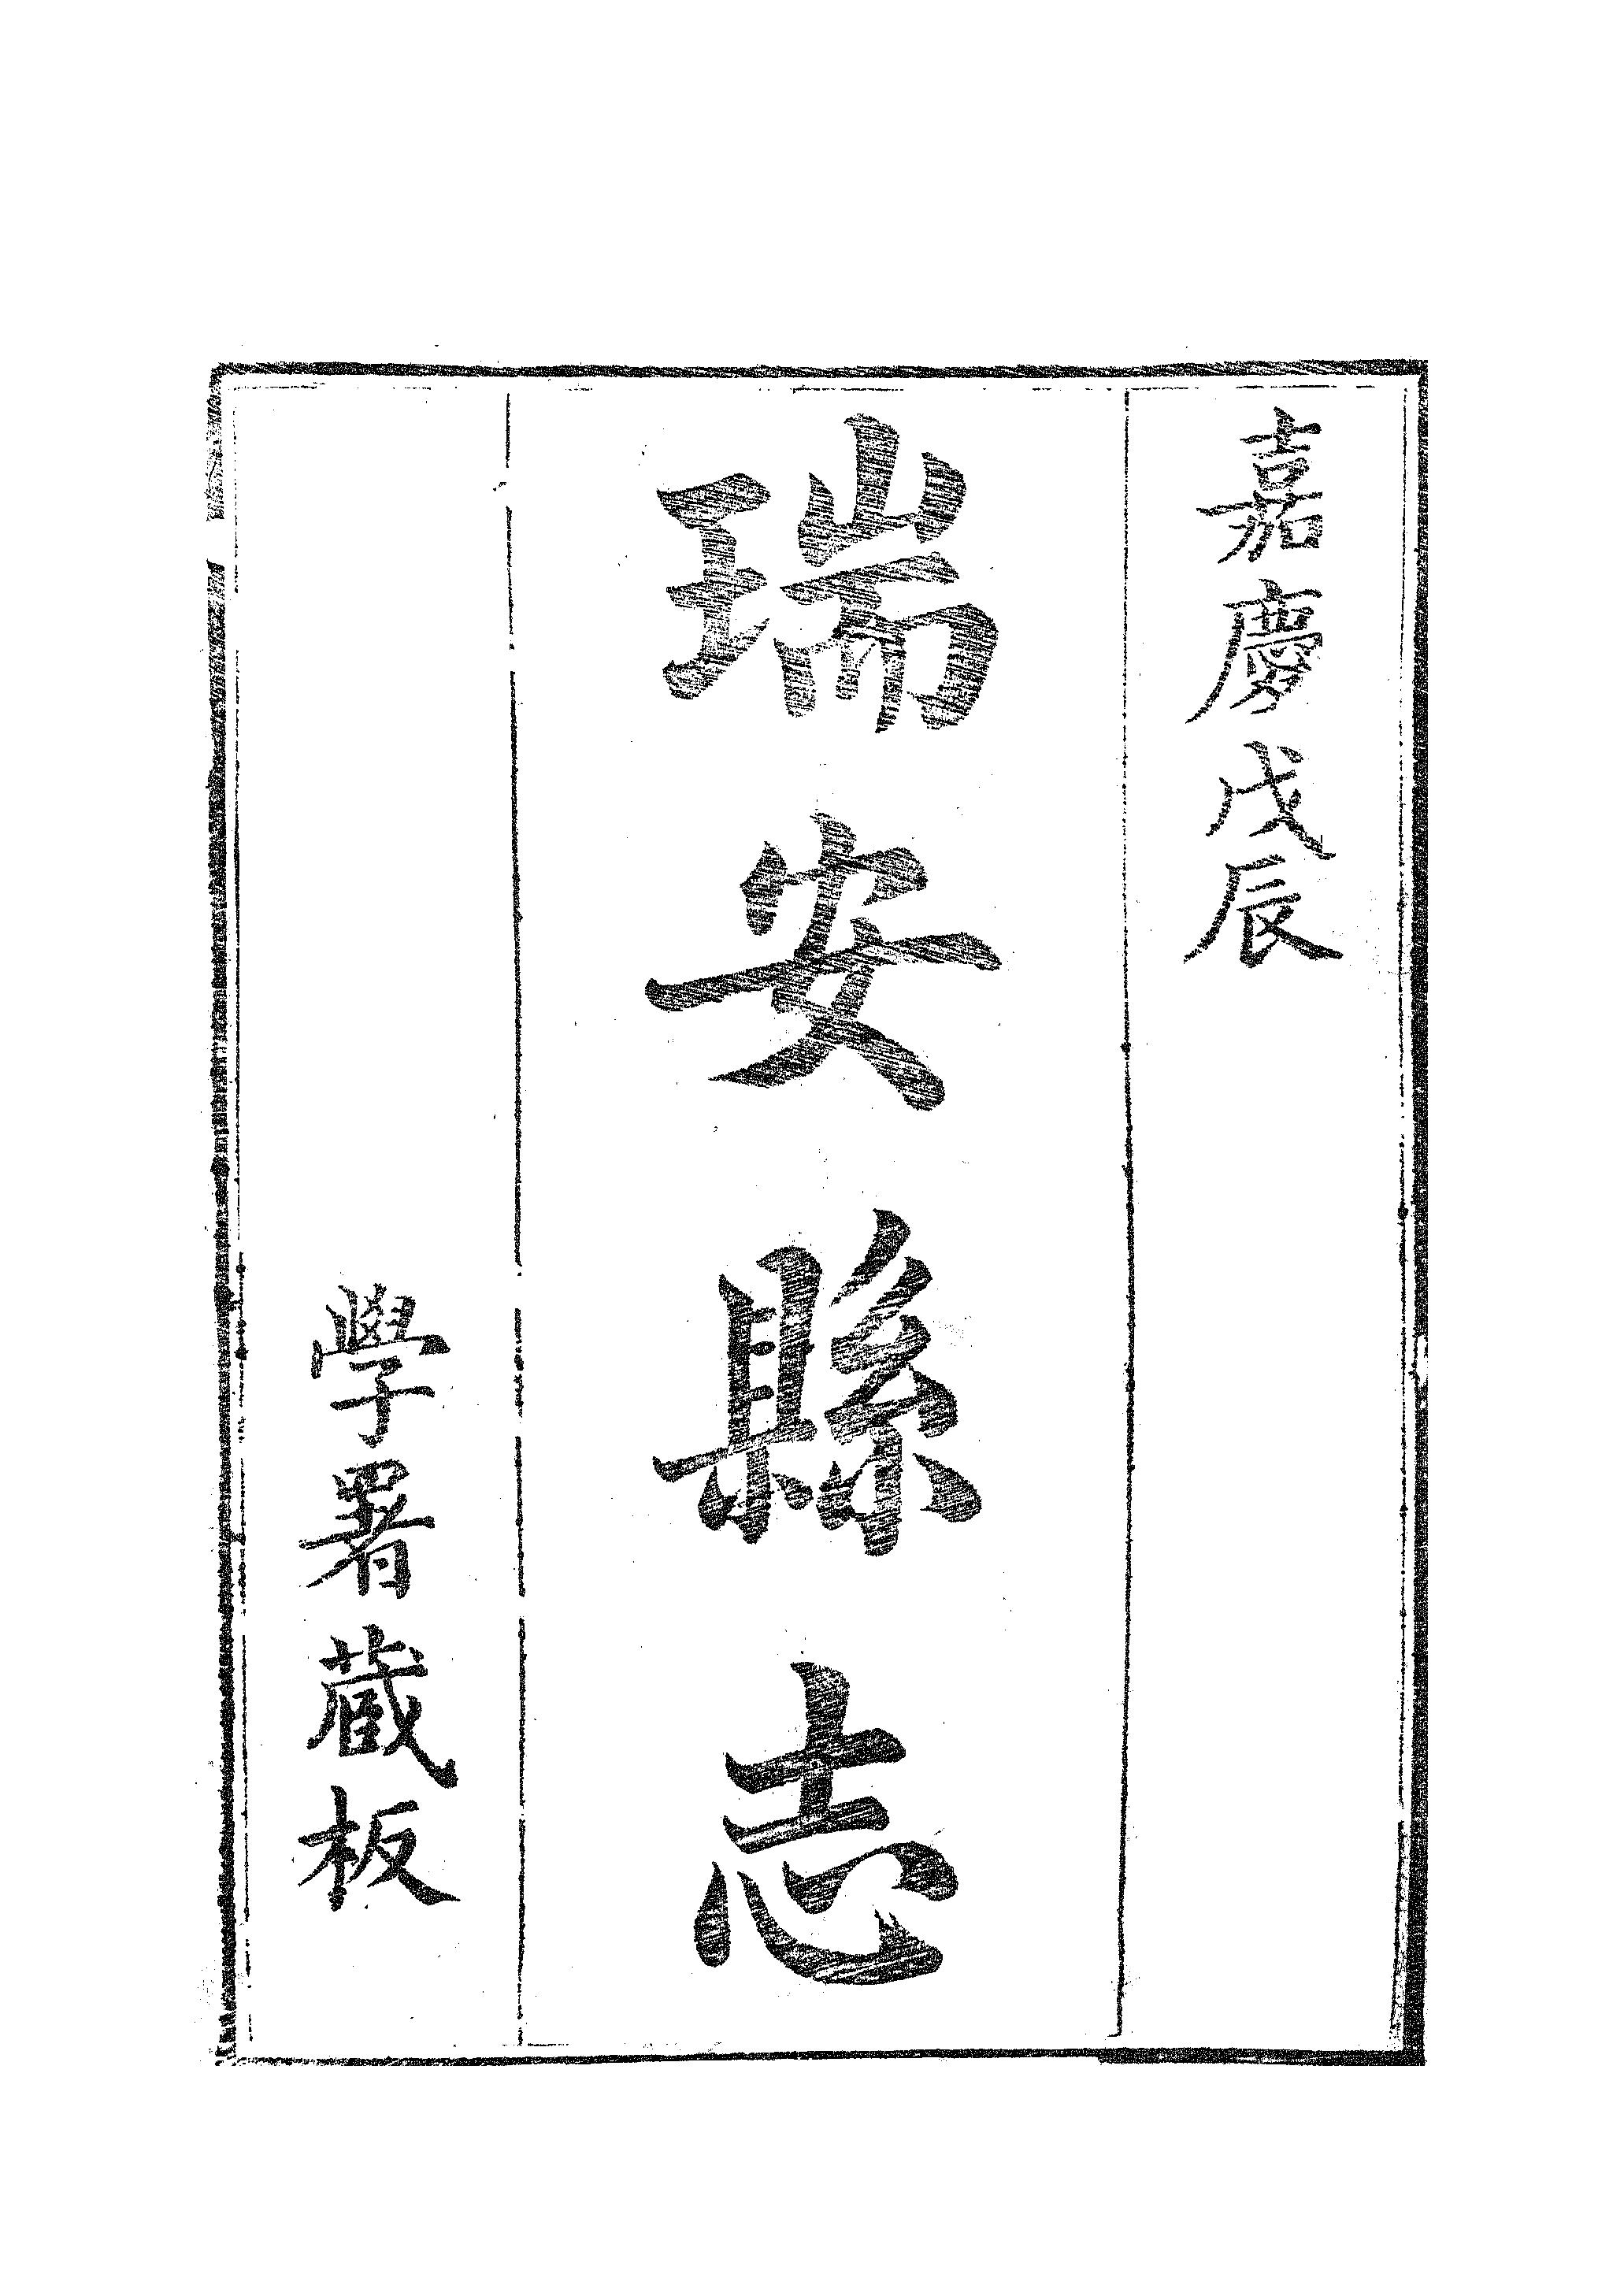 嘉慶戊辰
瑞安縣志
學署蔵板